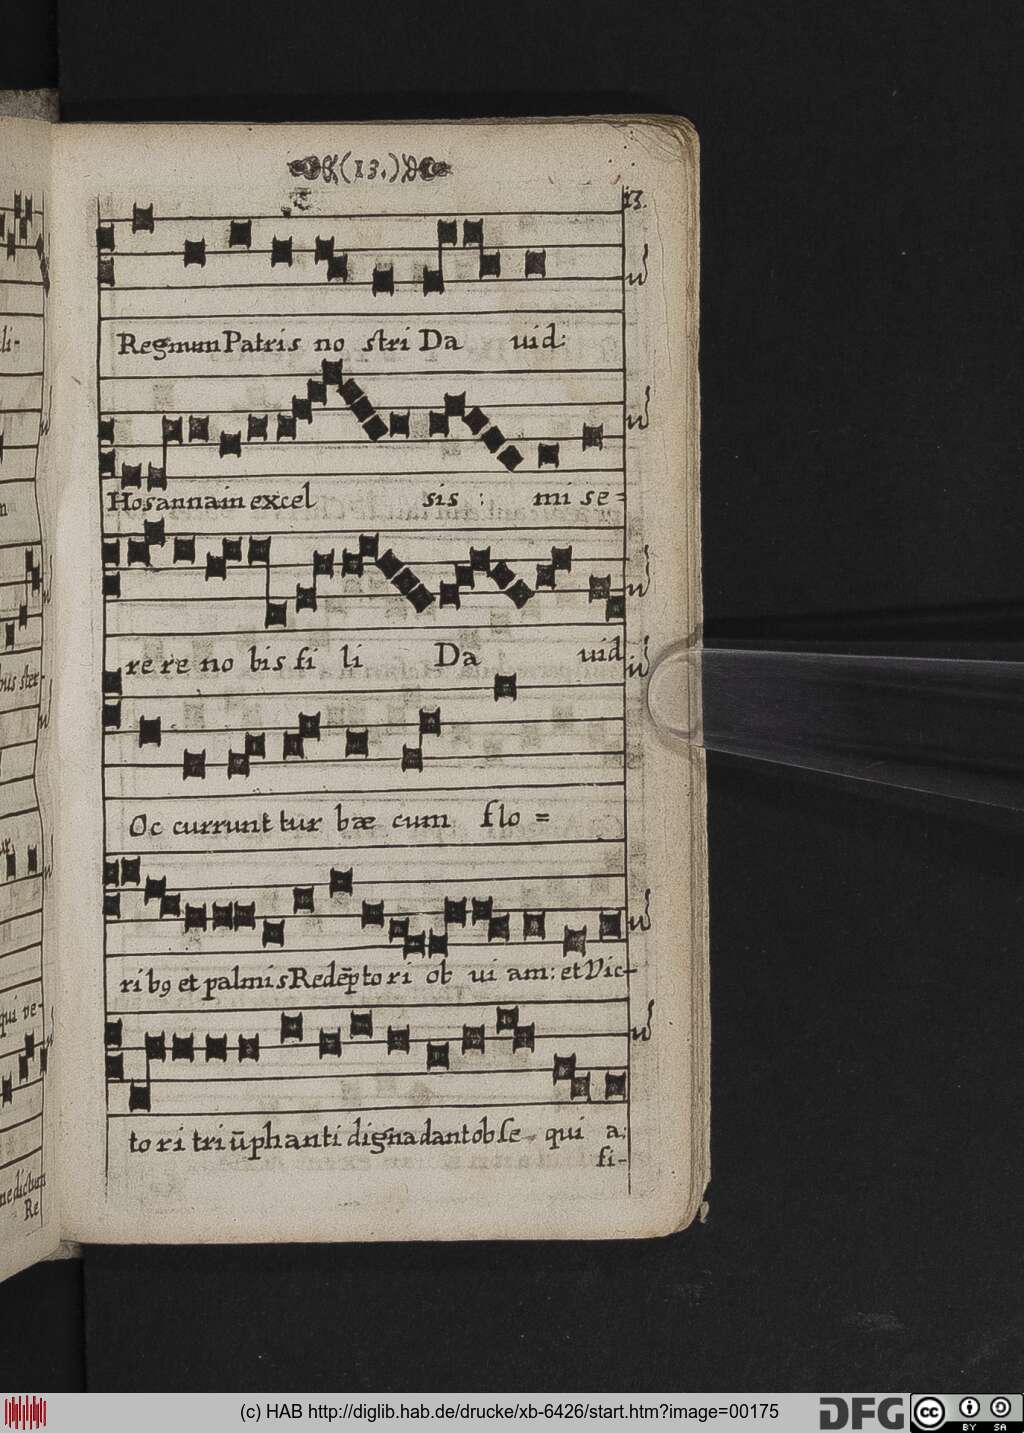 (13.)
13.
Regnum Patris no stri Da uid:
Hosanna in excel sis : mi se=
re re no bis fi li Da uid
Oc currunt tur bæ cum flo =
rib9 et palmis Redẽpto ri ob ui am: et Vic-
to ri triũphanti digna dant obse qui a:
fi-
li-
bus ster-
qui ve-
nedictum
Re
(c) HAB http://diglib.hab.de/drucke/xb-6426/start.htm?image=00175
DFG
cc BY SA